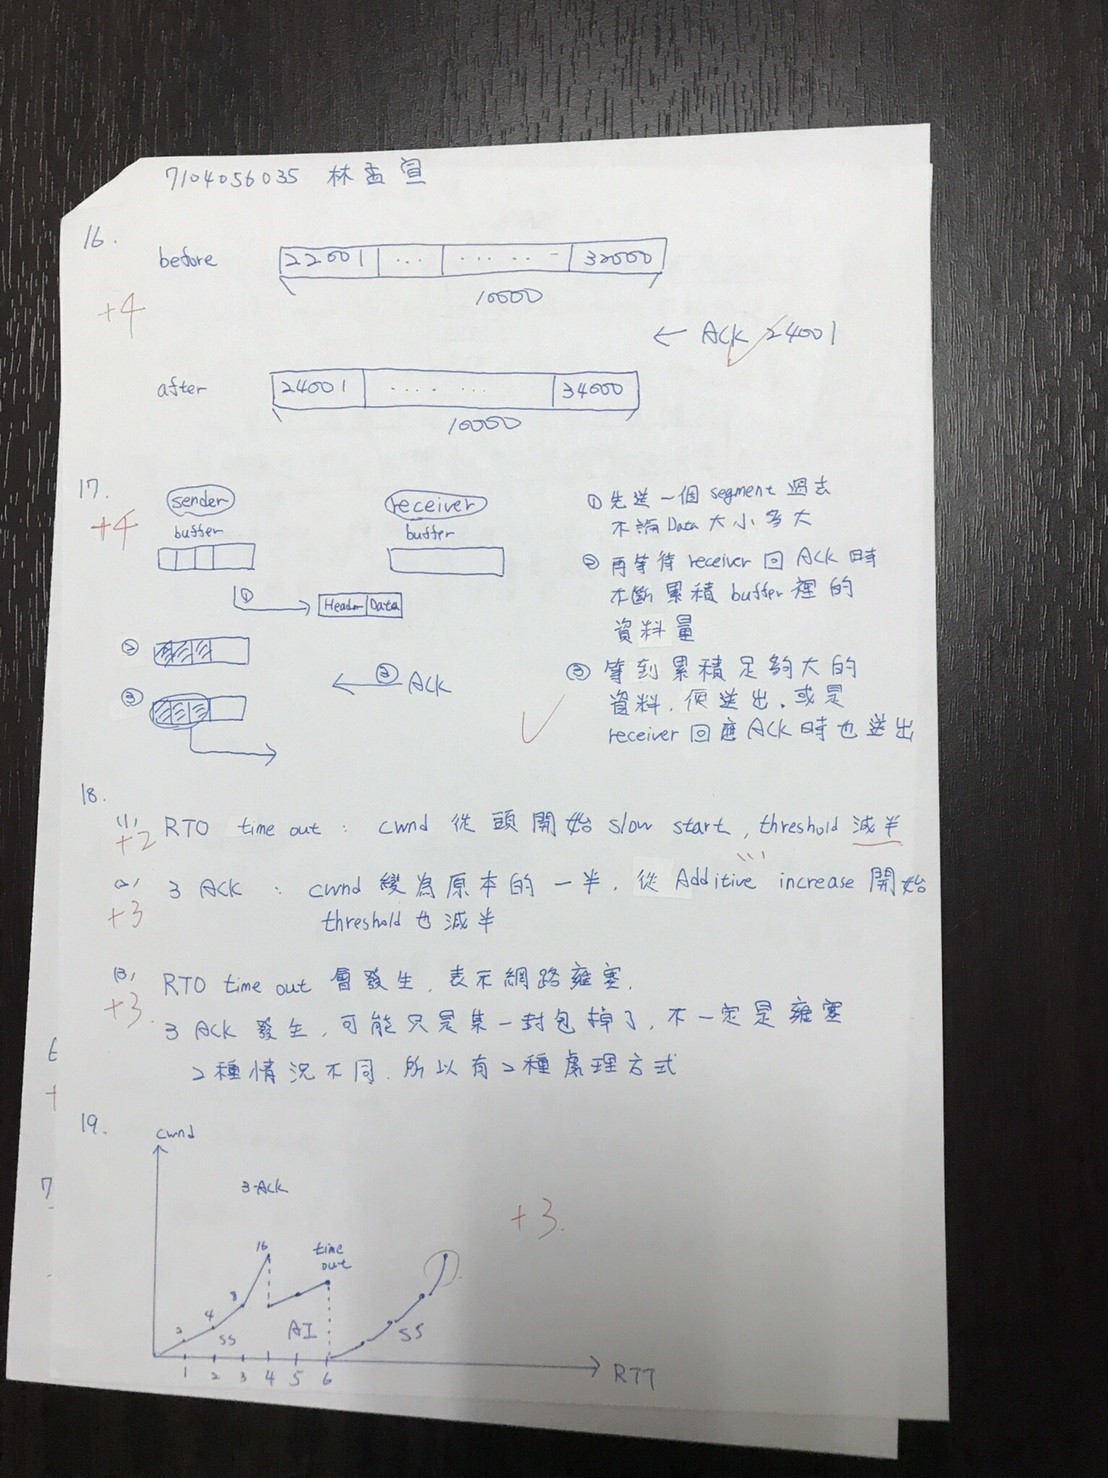 7104056035 林孟宣
16.
before 22001 ... ..... 32000
10000
+4
← Ack 24001
after 24001 ....... 34000
10000
17.
+4
sender receiver
buffer buffer
① Header Data
②
② ACK
③
① 先送一個 segment 過去
不論 Data 大小多大
② 再等待 receiver 回 ACK 時
不斷累積 buffer 裡的
資料量
③ 等到累積足夠大的
資料,便送出,或是
receiver 回應 ACK 時也送出
18.
(1) RTO time out : cwnd 從頭開始 slow start, threshold 減半
+2
(2) 3 ACK : cwnd 變為原本的一半,從 Additive increase 開始
+3
threshold 也減半
(3) RTO time out 會發生,表示網路雍塞,
+3
3 ACK 發生,可能只是某一封包掉了,不一定是雍塞
2種情況不同,所以有2種處理方式
6
+
19.
cwnd
7
3-ACK
+3.
16
time
out
8
4
2
SS
AI
SS
1 2 3 4 5 6
RTT